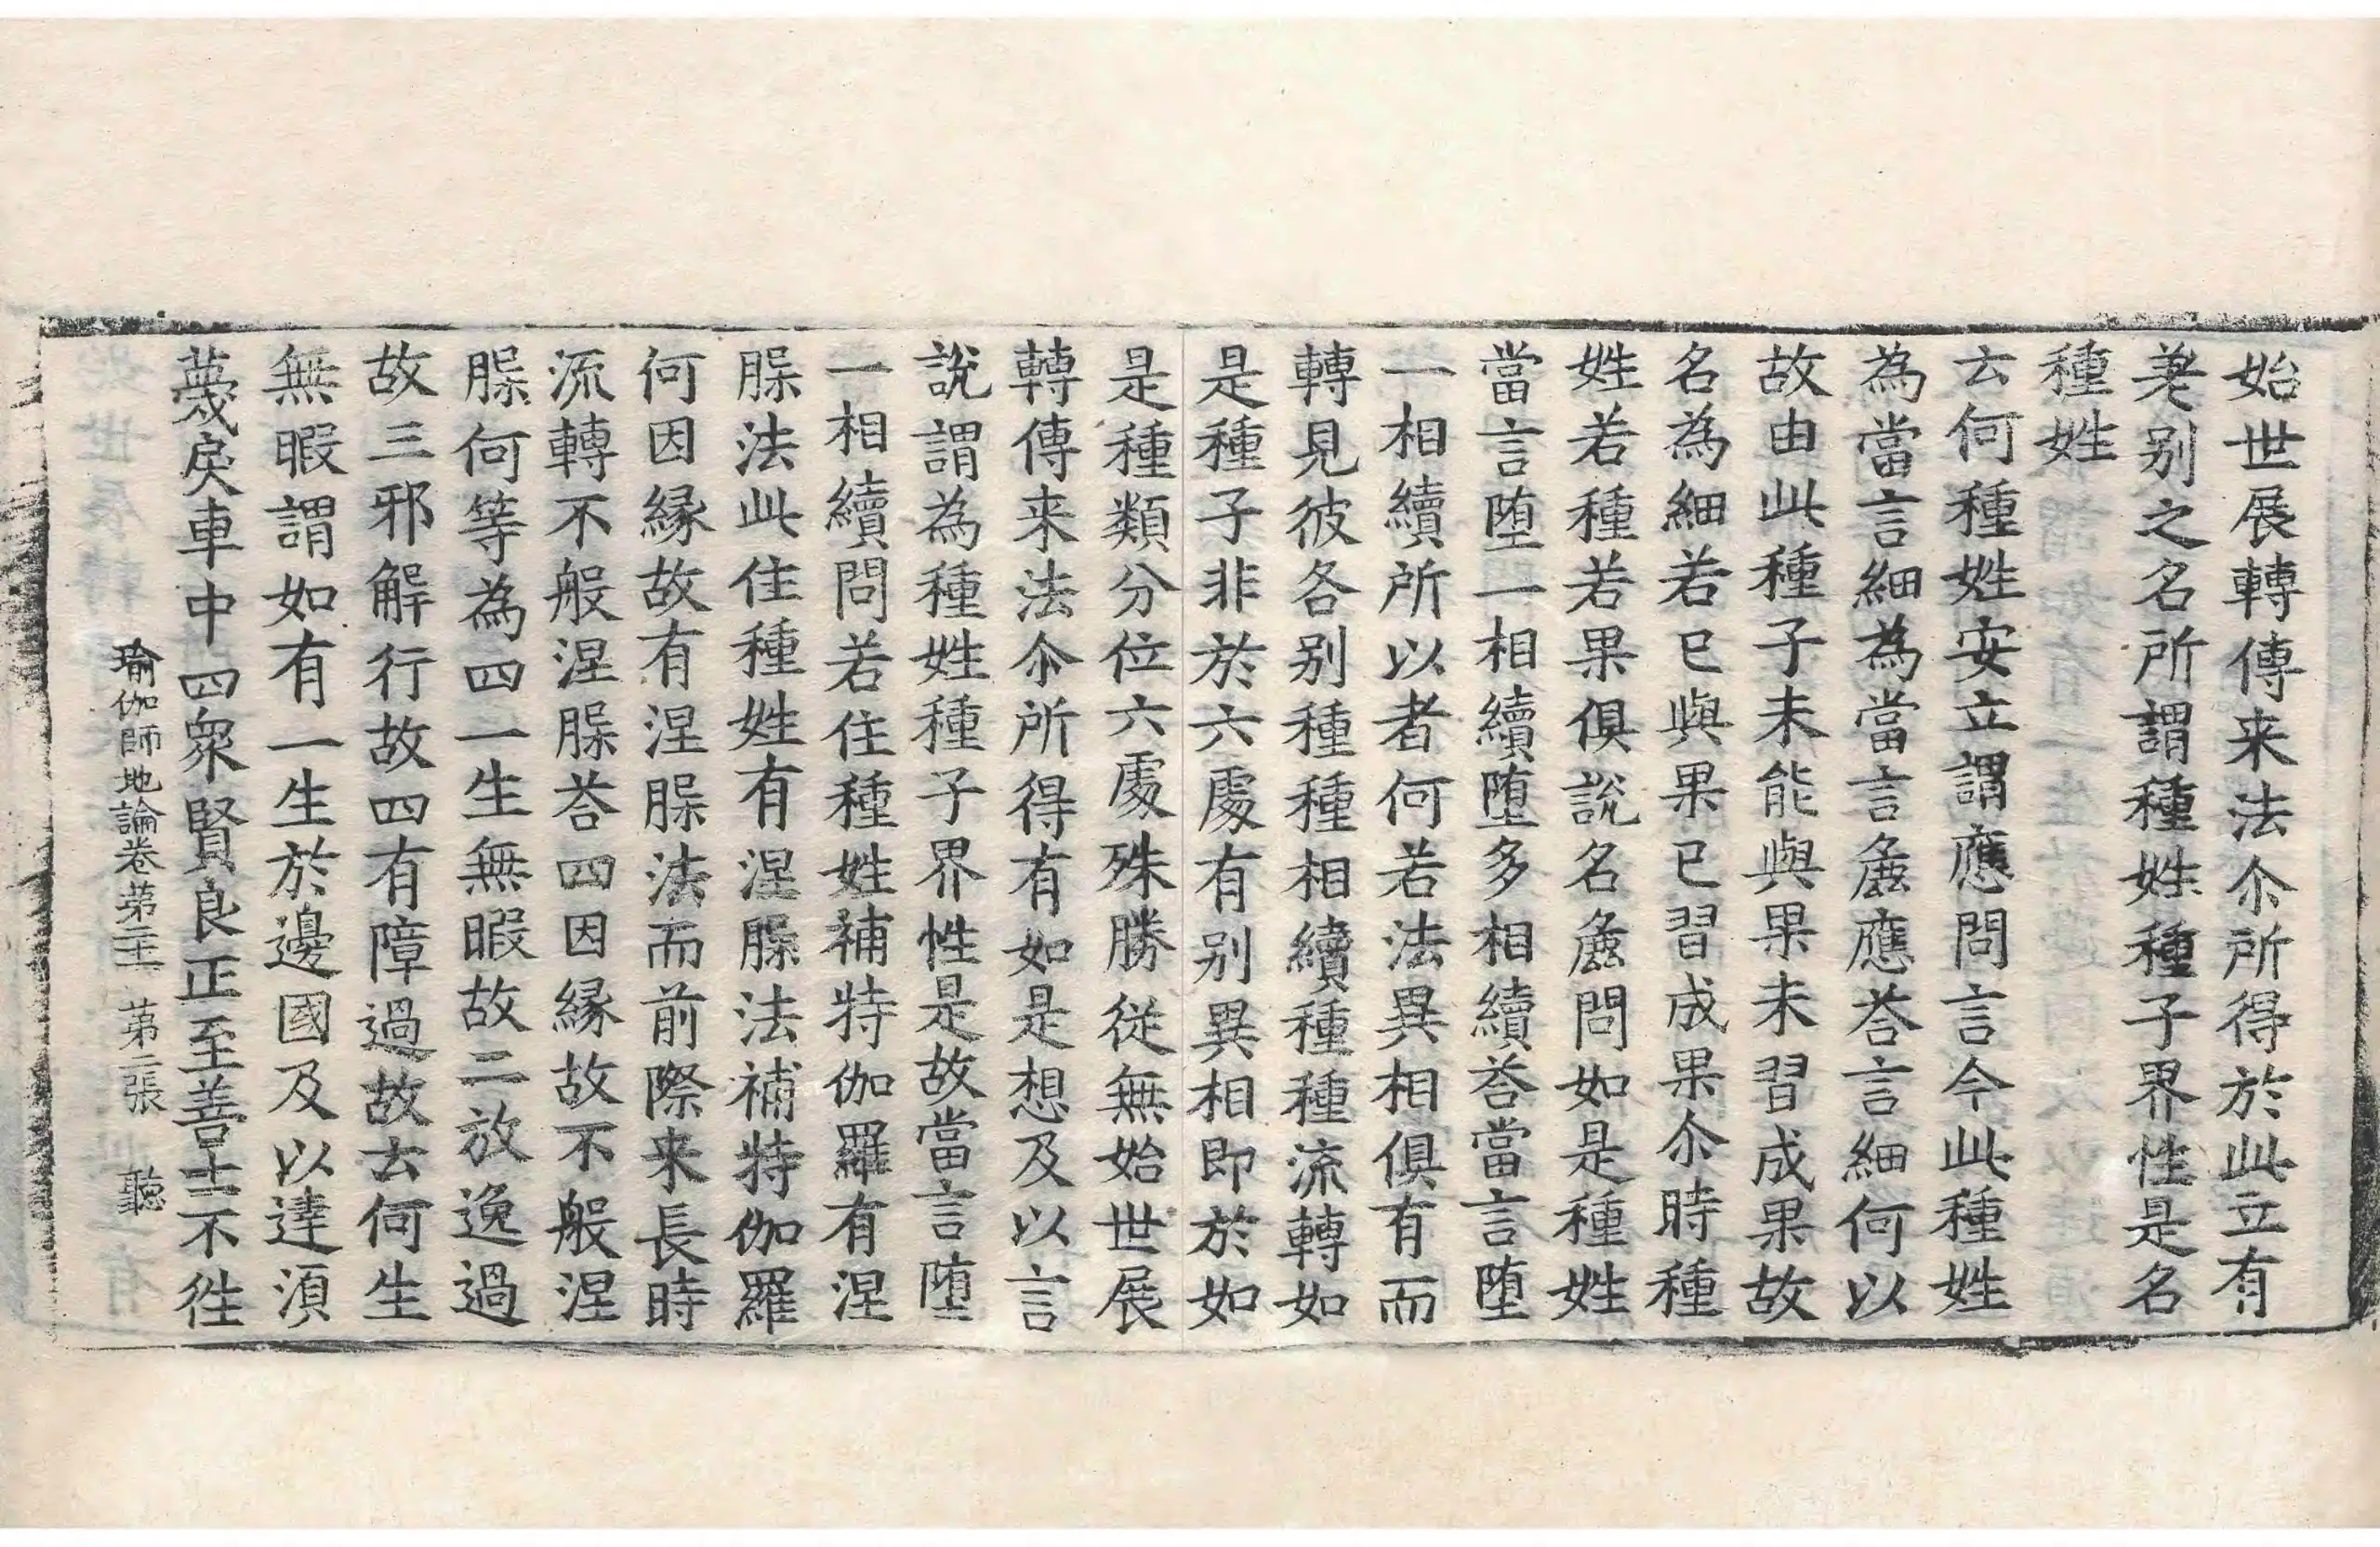 始世展轉傳来法尒所得於此立有
差别之名所謂種姓種子界性是名
種姓
云何種姓安立謂應問言今此種姓
為當言細為當言麁應荅言細何以
故由此種子未能與果未習成果故
名為細若已與果已習成果尒時種
姓若種若果俱說名麁問如是種姓
當言堕一相續堕多相續荅當言堕
一相續所以者何若法異相俱有而
轉見彼各别種種相續種種流轉如
是種子非於六處有别異相即於如
是種類分位六處殊勝從無始世展
轉傳来法尒所得有如是想及以言
說謂為種姓種子界性是故當言堕
一相續問若住種姓補特伽羅有涅
槃法此住種姓有涅槃法補特伽羅
何因緣故有涅槃法而前際来長時
流轉不般涅槃荅四因緣故不般涅
槃何等為四一生無暇故二放逸過
故三邪解行故四有障過故云何生
無暇謂如有一生於邊國及以達須
蔑戾車中四眾賢良正至善士不往
瑜伽師地論卷第二十一 第二張 聽